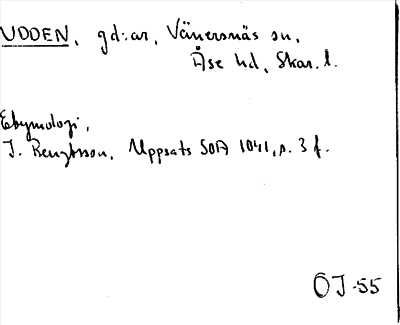 UDDEN, gd:ar, Vänersnäs sn,
Åse hd, Skar. l.
Etymologi,
J. Bengtsson, Uppsats SOA 1041, s. 3 f.
ÖJ-55